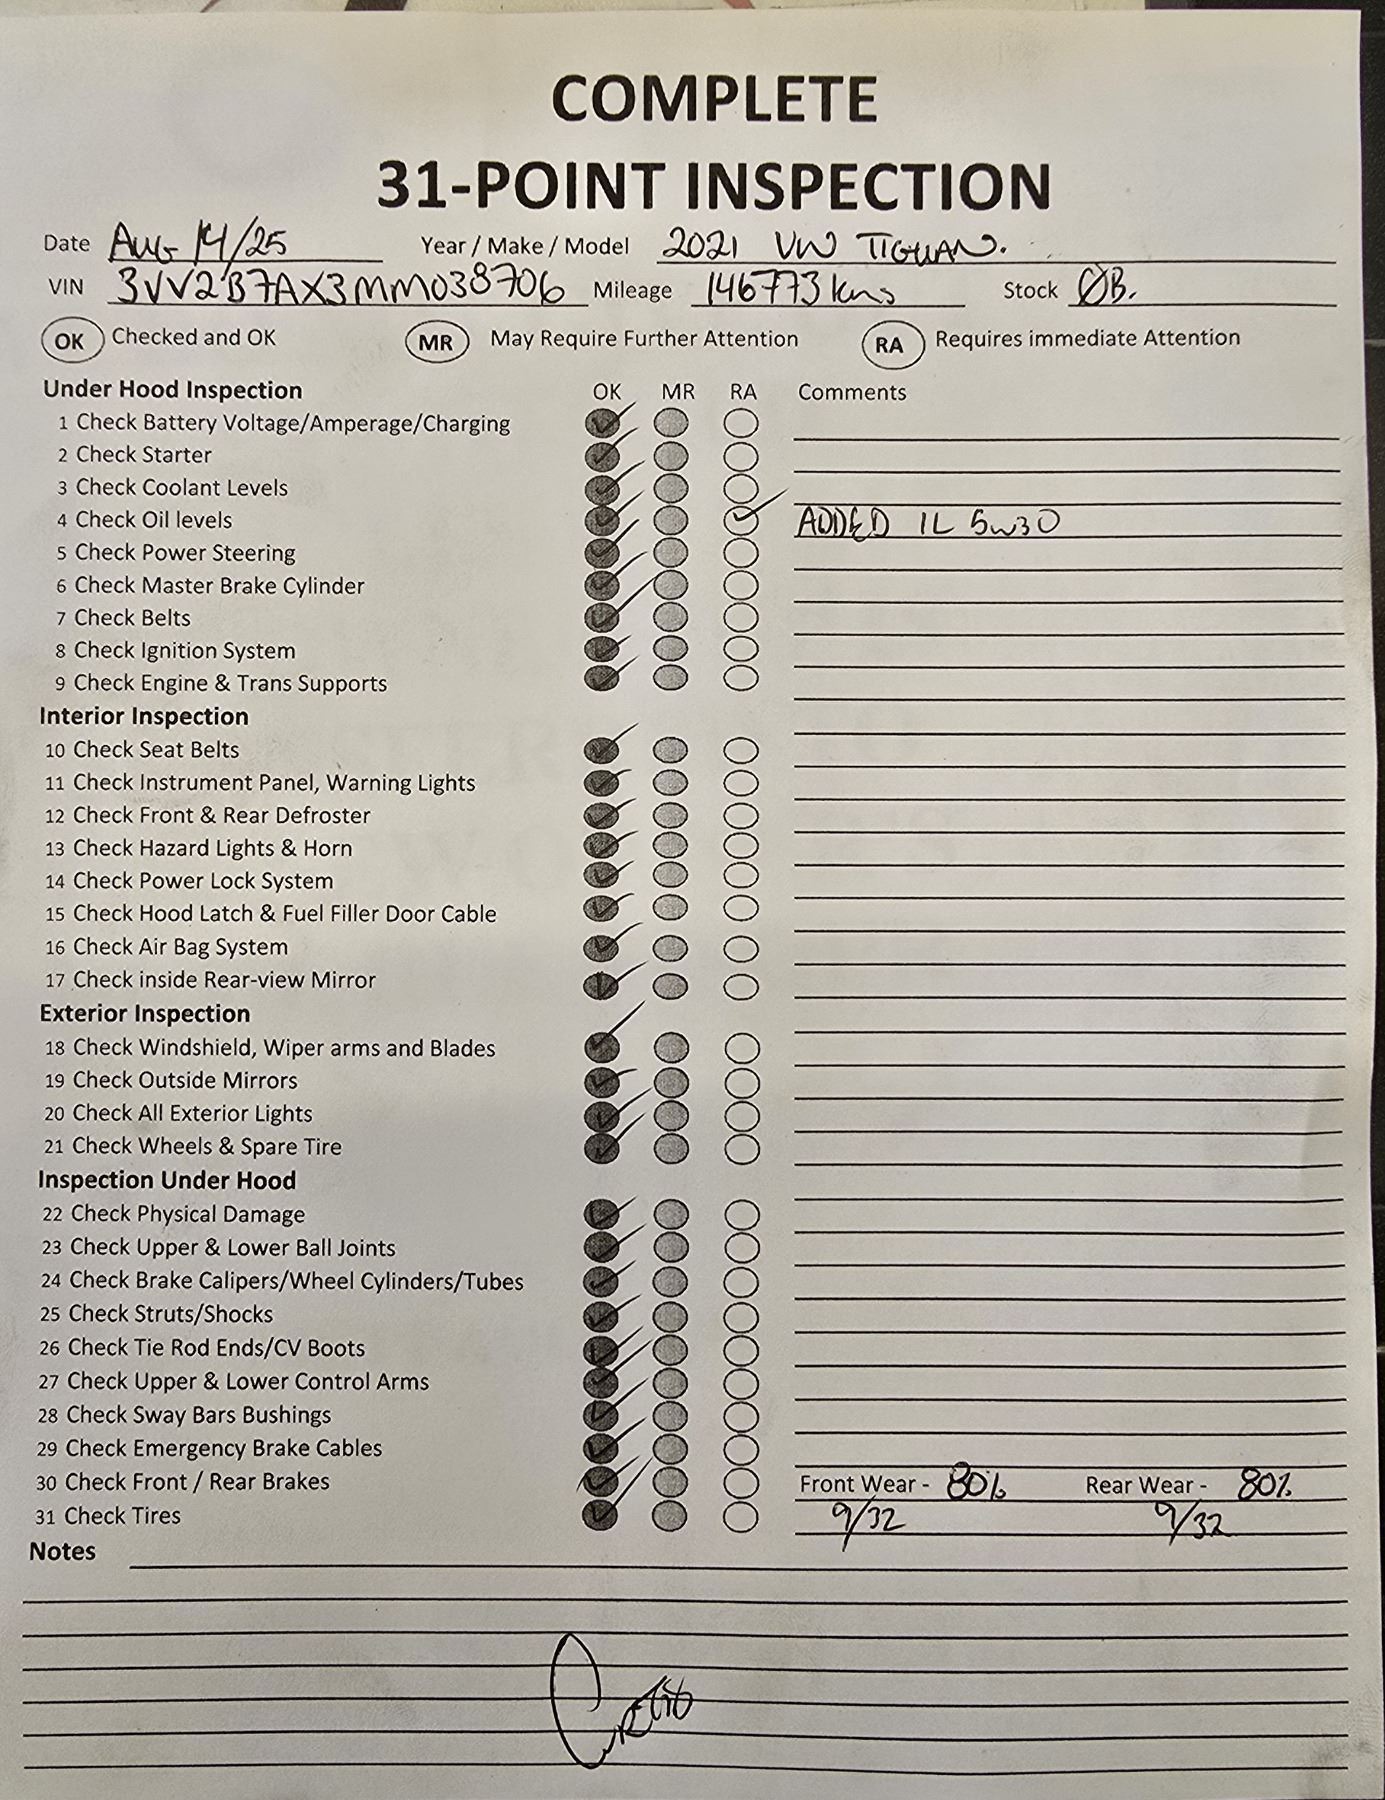 COMPLETE
31-POINT INSPECTION
Date Aug 14/25 Year / Make / Model 2021 VW TIGUAN.
VIN 3VV2B7AX3MM038706 Mileage 146773 kms Stock ØB.
OK Checked and OK MR May Require Further Attention RA Requires immediate Attention
Under Hood Inspection OK MR RA Comments
1 Check Battery Voltage/Amperage/Charging
2 Check Starter
3 Check Coolant Levels
4 Check Oil levels ADDED 1L 5w30
5 Check Power Steering
6 Check Master Brake Cylinder
7 Check Belts
8 Check Ignition System
9 Check Engine & Trans Supports
Interior Inspection
10 Check Seat Belts
11 Check Instrument Panel, Warning Lights
12 Check Front & Rear Defroster
13 Check Hazard Lights & Horn
14 Check Power Lock System
15 Check Hood Latch & Fuel Filler Door Cable
16 Check Air Bag System
17 Check inside Rear-view Mirror
Exterior Inspection
18 Check Windshield, Wiper arms and Blades
19 Check Outside Mirrors
20 Check All Exterior Lights
21 Check Wheels & Spare Tire
Inspection Under Hood
22 Check Physical Damage
23 Check Upper & Lower Ball Joints
24 Check Brake Calipers/Wheel Cylinders/Tubes
25 Check Struts/Shocks
26 Check Tie Rod Ends/CV Boots
27 Check Upper & Lower Control Arms
28 Check Sway Bars Bushings
29 Check Emergency Brake Cables
30 Check Front / Rear Brakes Front Wear - 80% Rear Wear - 80%
31 Check Tires 9/32 9/32
Notes